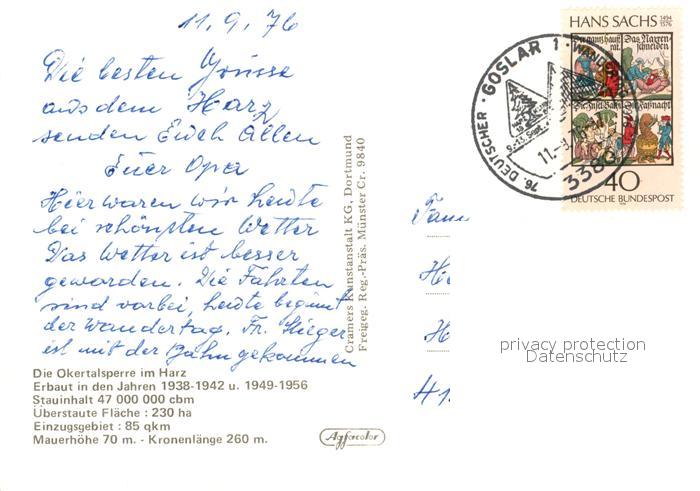 11.9.76
Die besten Grüsse
aus dem Harz
senden Euch Allen
Euer Opa
Hier waren wir heute
bei schönsten Wetter
Das Wetter ist besser
geworden. Die Fahrten
sind vorbei, heute beginnt
der Wandertag. Fr. Stieger
ist mit der Bahn gekommen
Die Okertalsperre im Harz
Erbaut in den Jahren 1938-1942 u. 1949-1956
Stauinhalt 47 000 000 cbm
Überstaute Fläche : 230 ha
Einzugsgebiet : 85 qkm
Mauerhöhe 70 m. - Kronenlänge 260 m.
Cramers Kunstanstalt KG, Dortmund
Freigeg. Reg.-Präs. Münster Cr. 9840
Agfacolor
76. DEUTSCHER
GOSLAR 1
9.-13. Sept.
3380
HANS SACHS 1494 1576
Der ganz hauß rat. Das Narren schneiden
40
DEUTSCHE BUNDESPOST
Fam
Hi
H
41
privacy protection
Datenschutz